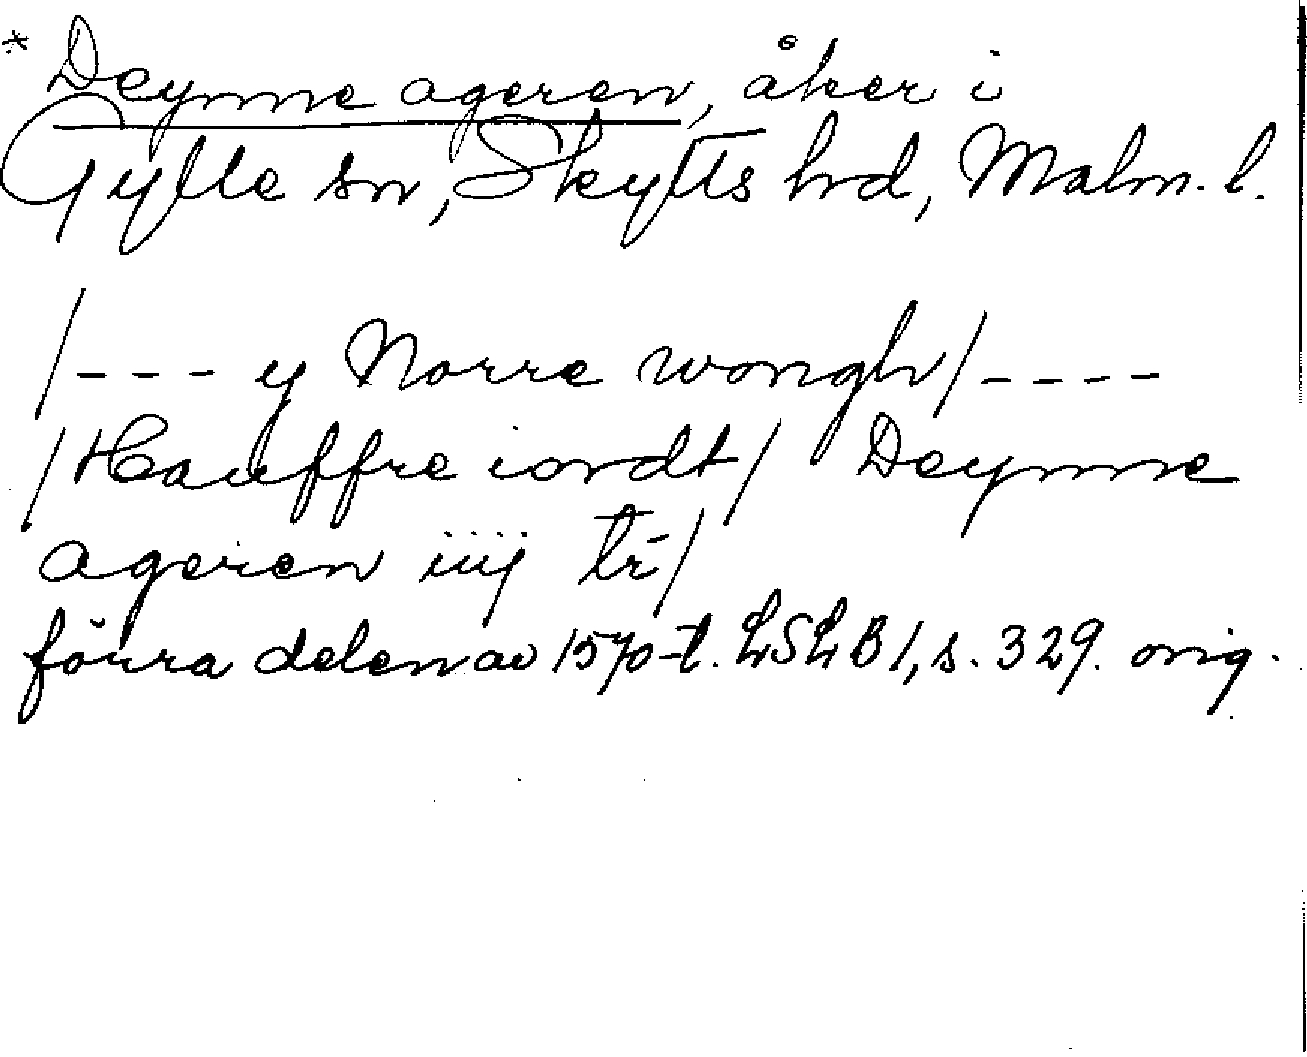 * Deynne ageren, åker i
Gylle sn, Skytts hd, Malm. l.
/--- y Norre wongh/----
/Hauffre iordt/ Deynne
ageren iiij tr/
förra delen av 1570-t. LSLB1, s. 329. orig.